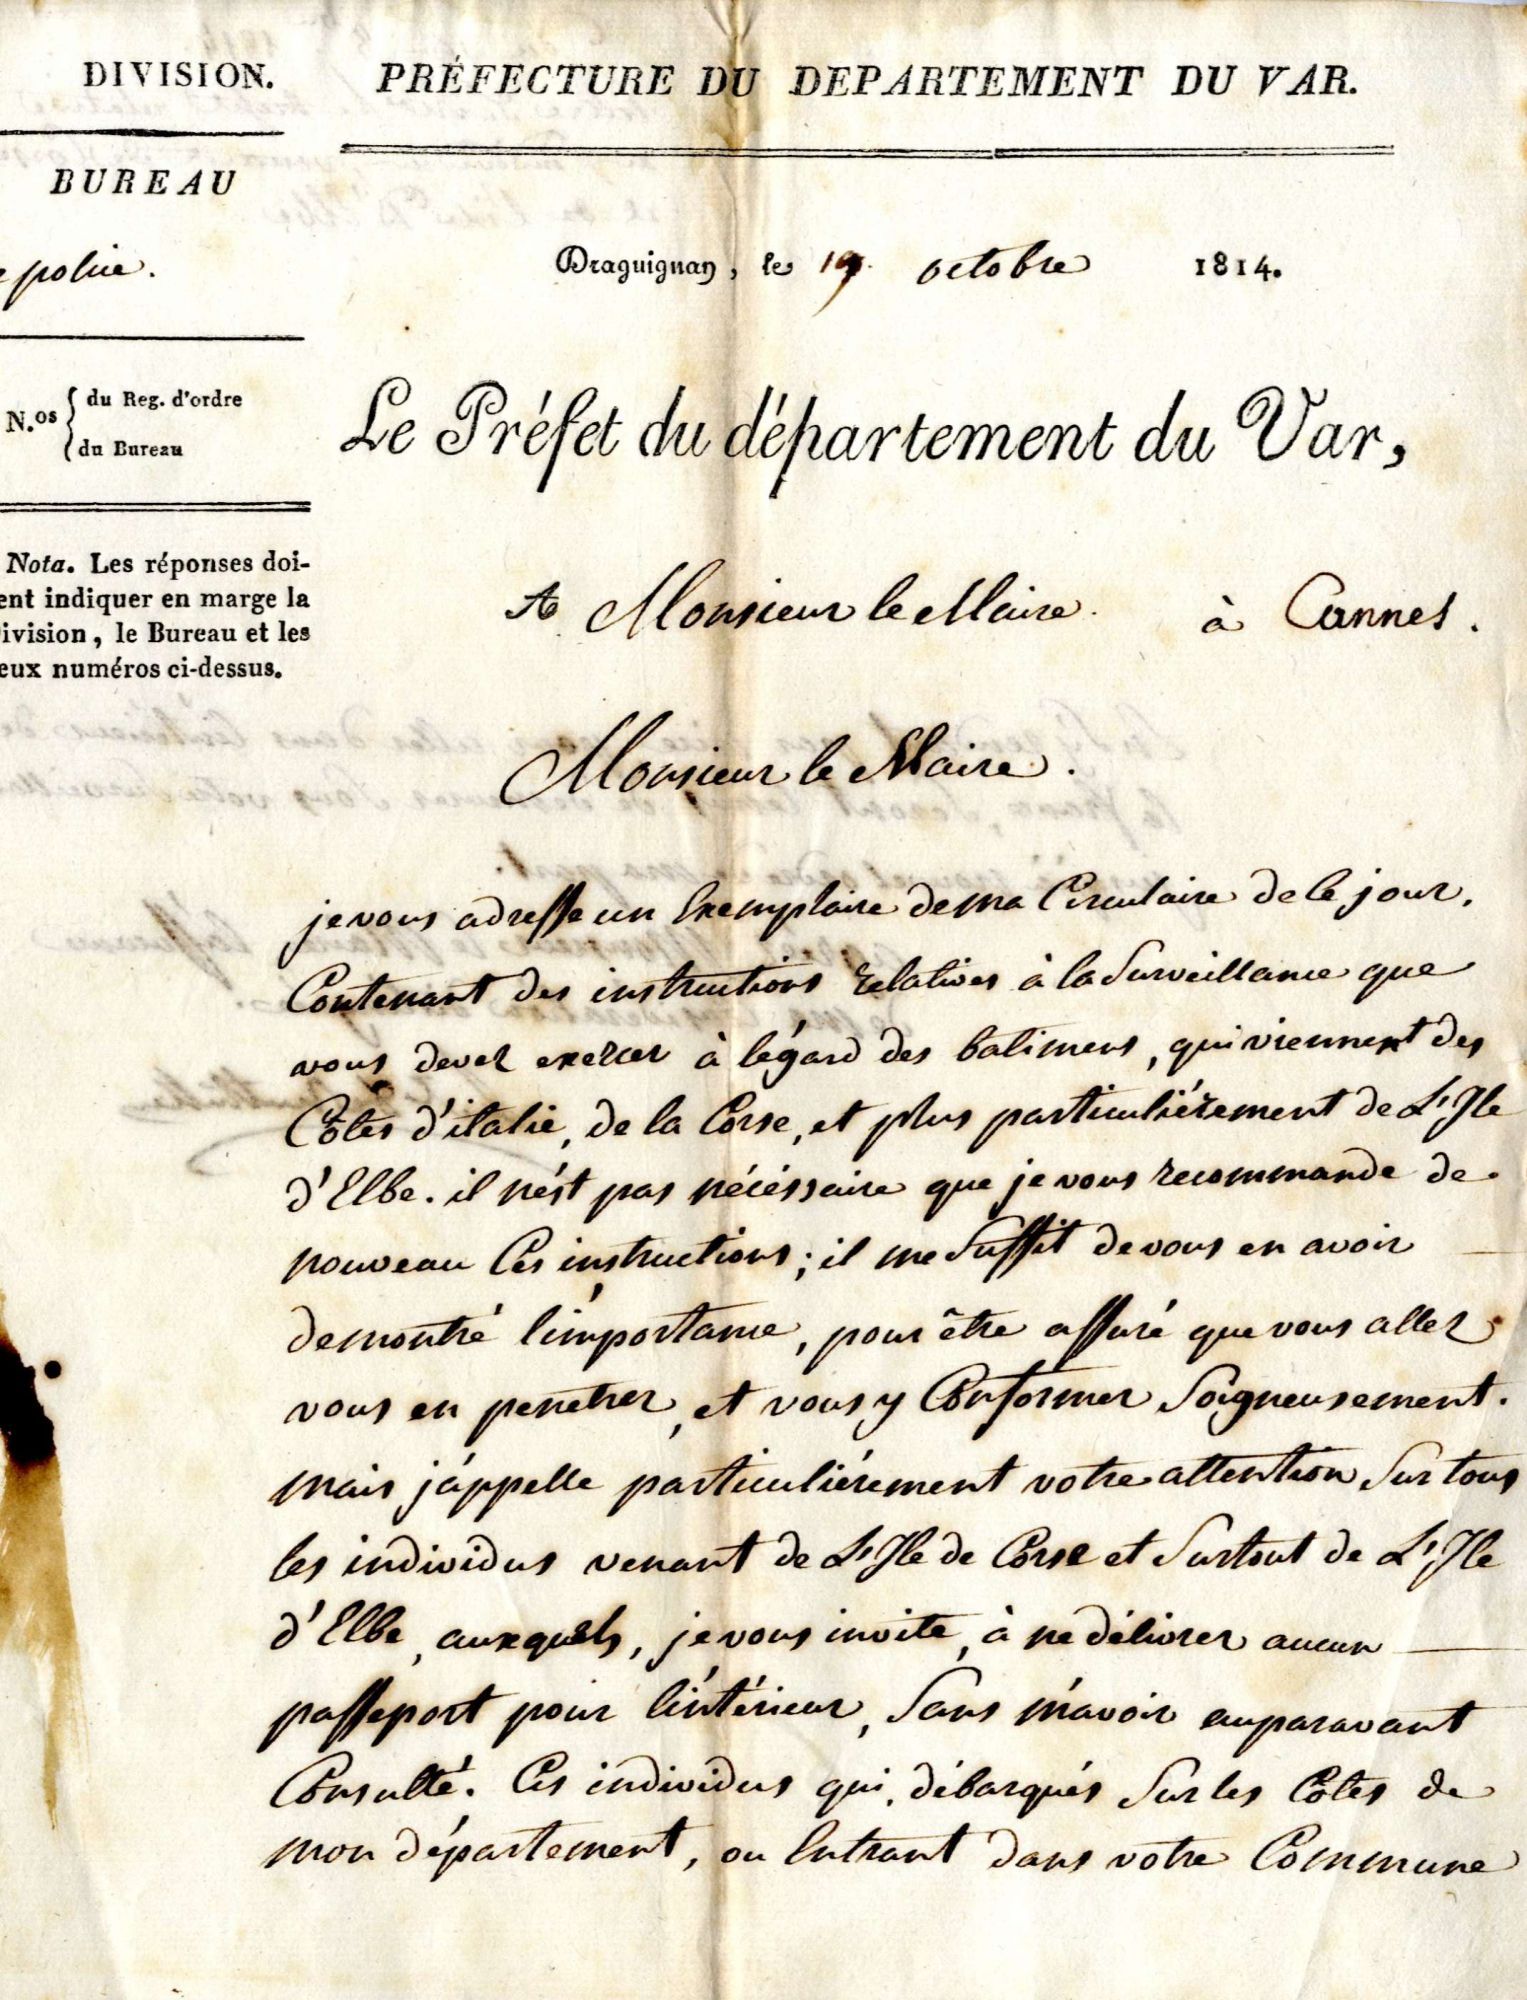 DIVISION.
PRÉFECTURE DU DEPARTEMENT DU VAR.
BUREAU
police.
Draguignan, le 19 octobre 1814.
N.os { du Reg. d'ordre
du Bureau
Le Préfet du département du Var,
Nota. Les réponses doi-
ent indiquer en marge la
ivision, le Bureau et les
eux numéros ci-dessus.
A Monsieur le Maire. à Cannes.
Monsieur le Maire.
je vous adresse un Exemplaire de ma Circulaire de le jour,
Contenant des instructions relatives à la Surveillance que
vous devez exercer à l'égard des batimens, qui viennent des
Côtes d'italie, de la Corse, et plus particuliérement de L'Ile
d'Elbe. il n'ést pas nécéssaire que je vous recommande de
nouveau Ces instructions; il me Suffit de vous en avoir
demontré l'importance, pour être assuré que vous allez
vous en penetrer, et vous y Conformer Soigneusement.
mais j'appelle particuliérement votre attention Sur tous
les individus venant de L'Ile de Corse et Surtout de L'Ile
d'Elbe, auxquels, je vous invite, à ne délivrer aucun
passeport pour l'intérieur, Sans m'avoir auparavant
Consulté. Ces individus qui, débarqués Sur les Côtes de
mon département, ou Entrant dans votre Commune